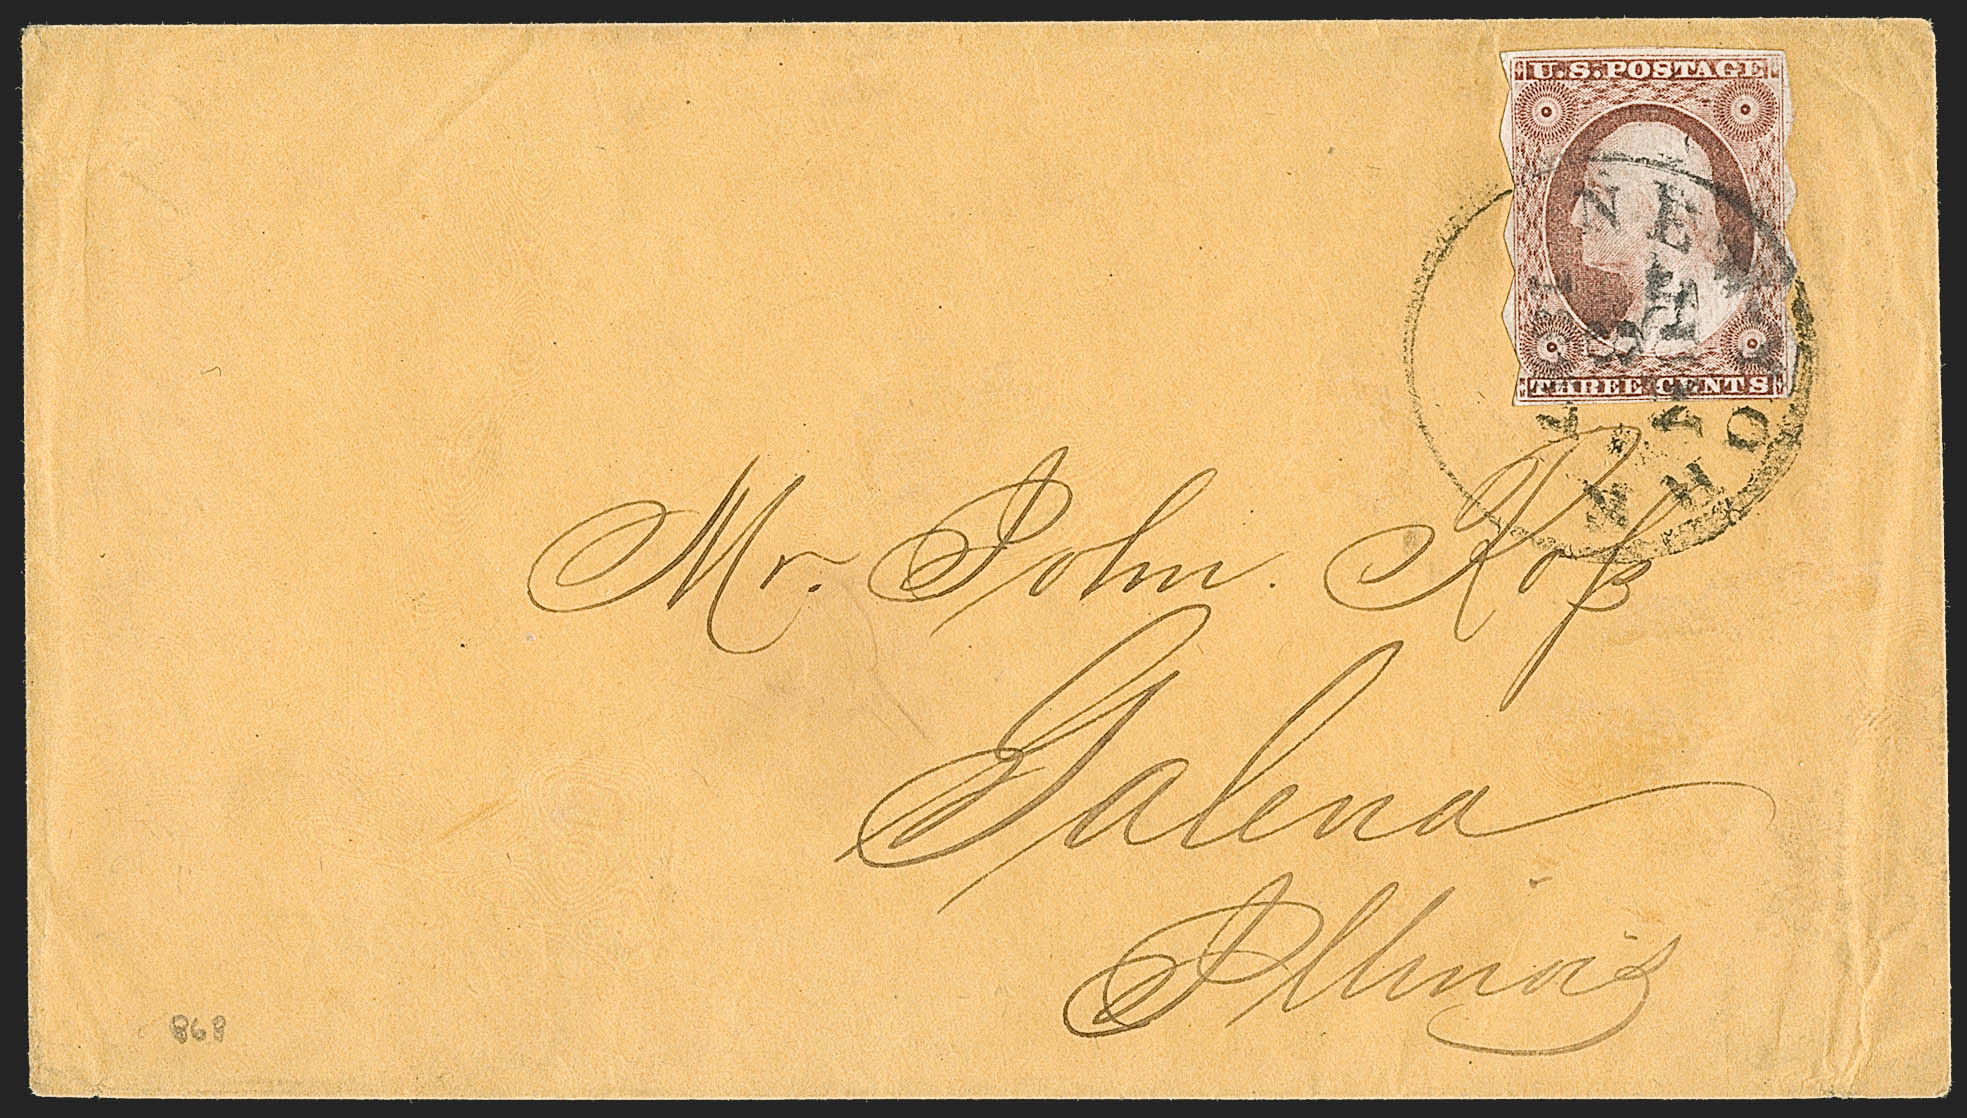 U.S. POSTAGE
THREE CENTS
Mr. John Roſs
Galena
Illinois
868